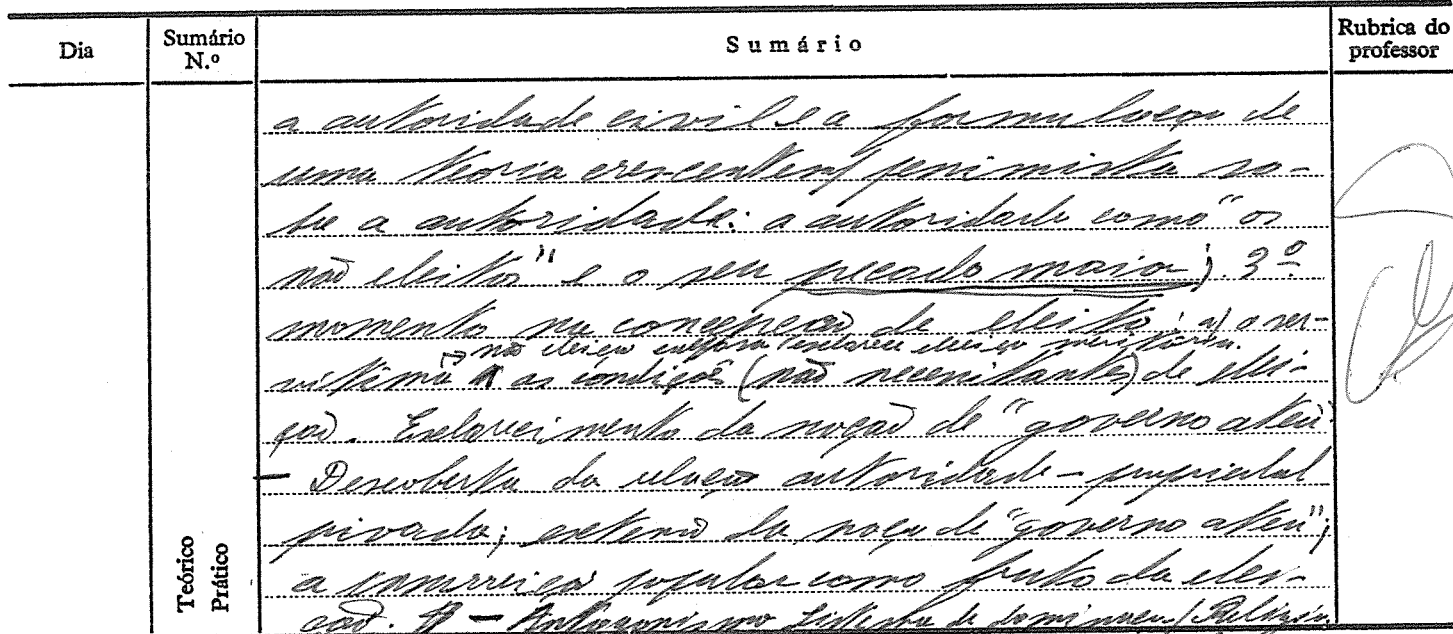 Dia
Sumário N.º
Sumário
Rubrica do professor
a autoridade civil e a formulação de
uma teoria crescentem/ pessimista so-
bre a autoridade: a autoridade como "os
não eleitos" e o seu pecado maior; 3º
momento na concepção de eleito: a) o ser-
não eleição
as condições (não necessitantes) de elei-
ção. Esclarecimento da noção de "governo ateu"
- Descoberta da relação autoridade - propriedad
privada; extensão da noção de "governo ateu";
a insurreição popular como fruto da elei-
ção. - Antagonismo sistema de
Teórico
Prático